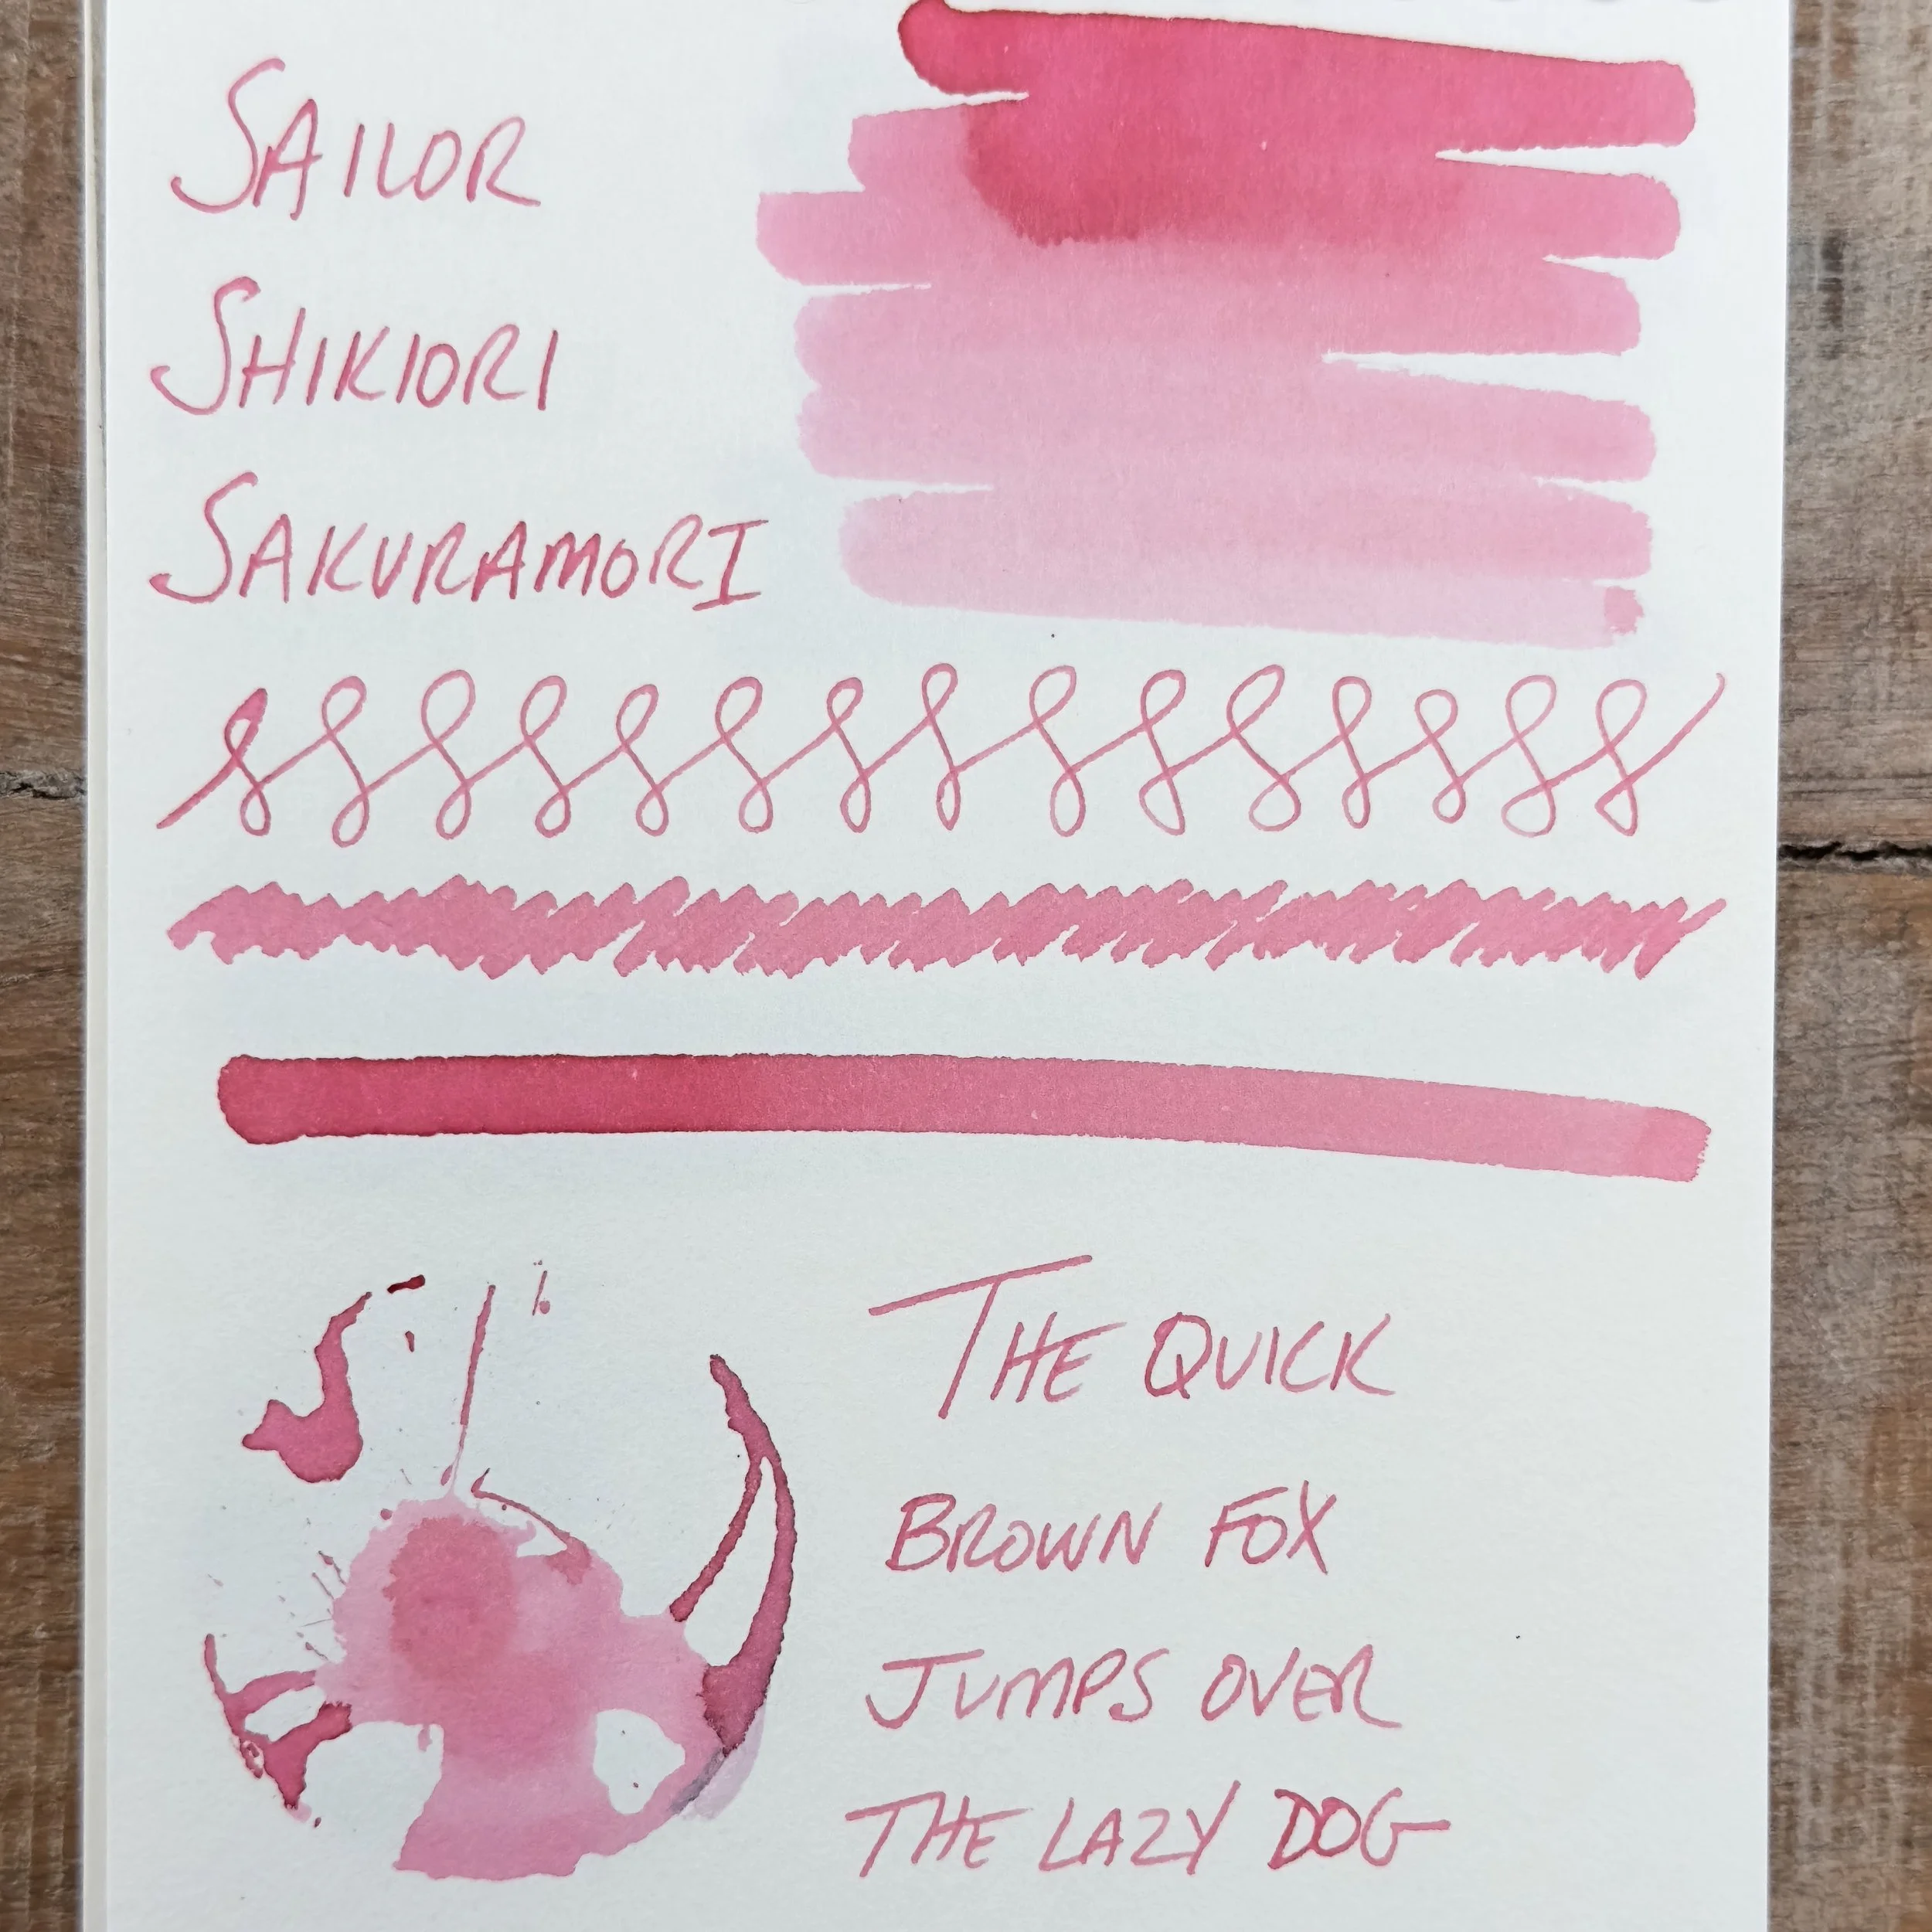 SAILOR
SHIKIORI
SAKURAMORI
THE QUICK
BROWN FOX
JUMPS OVER
THE LAZY DOG